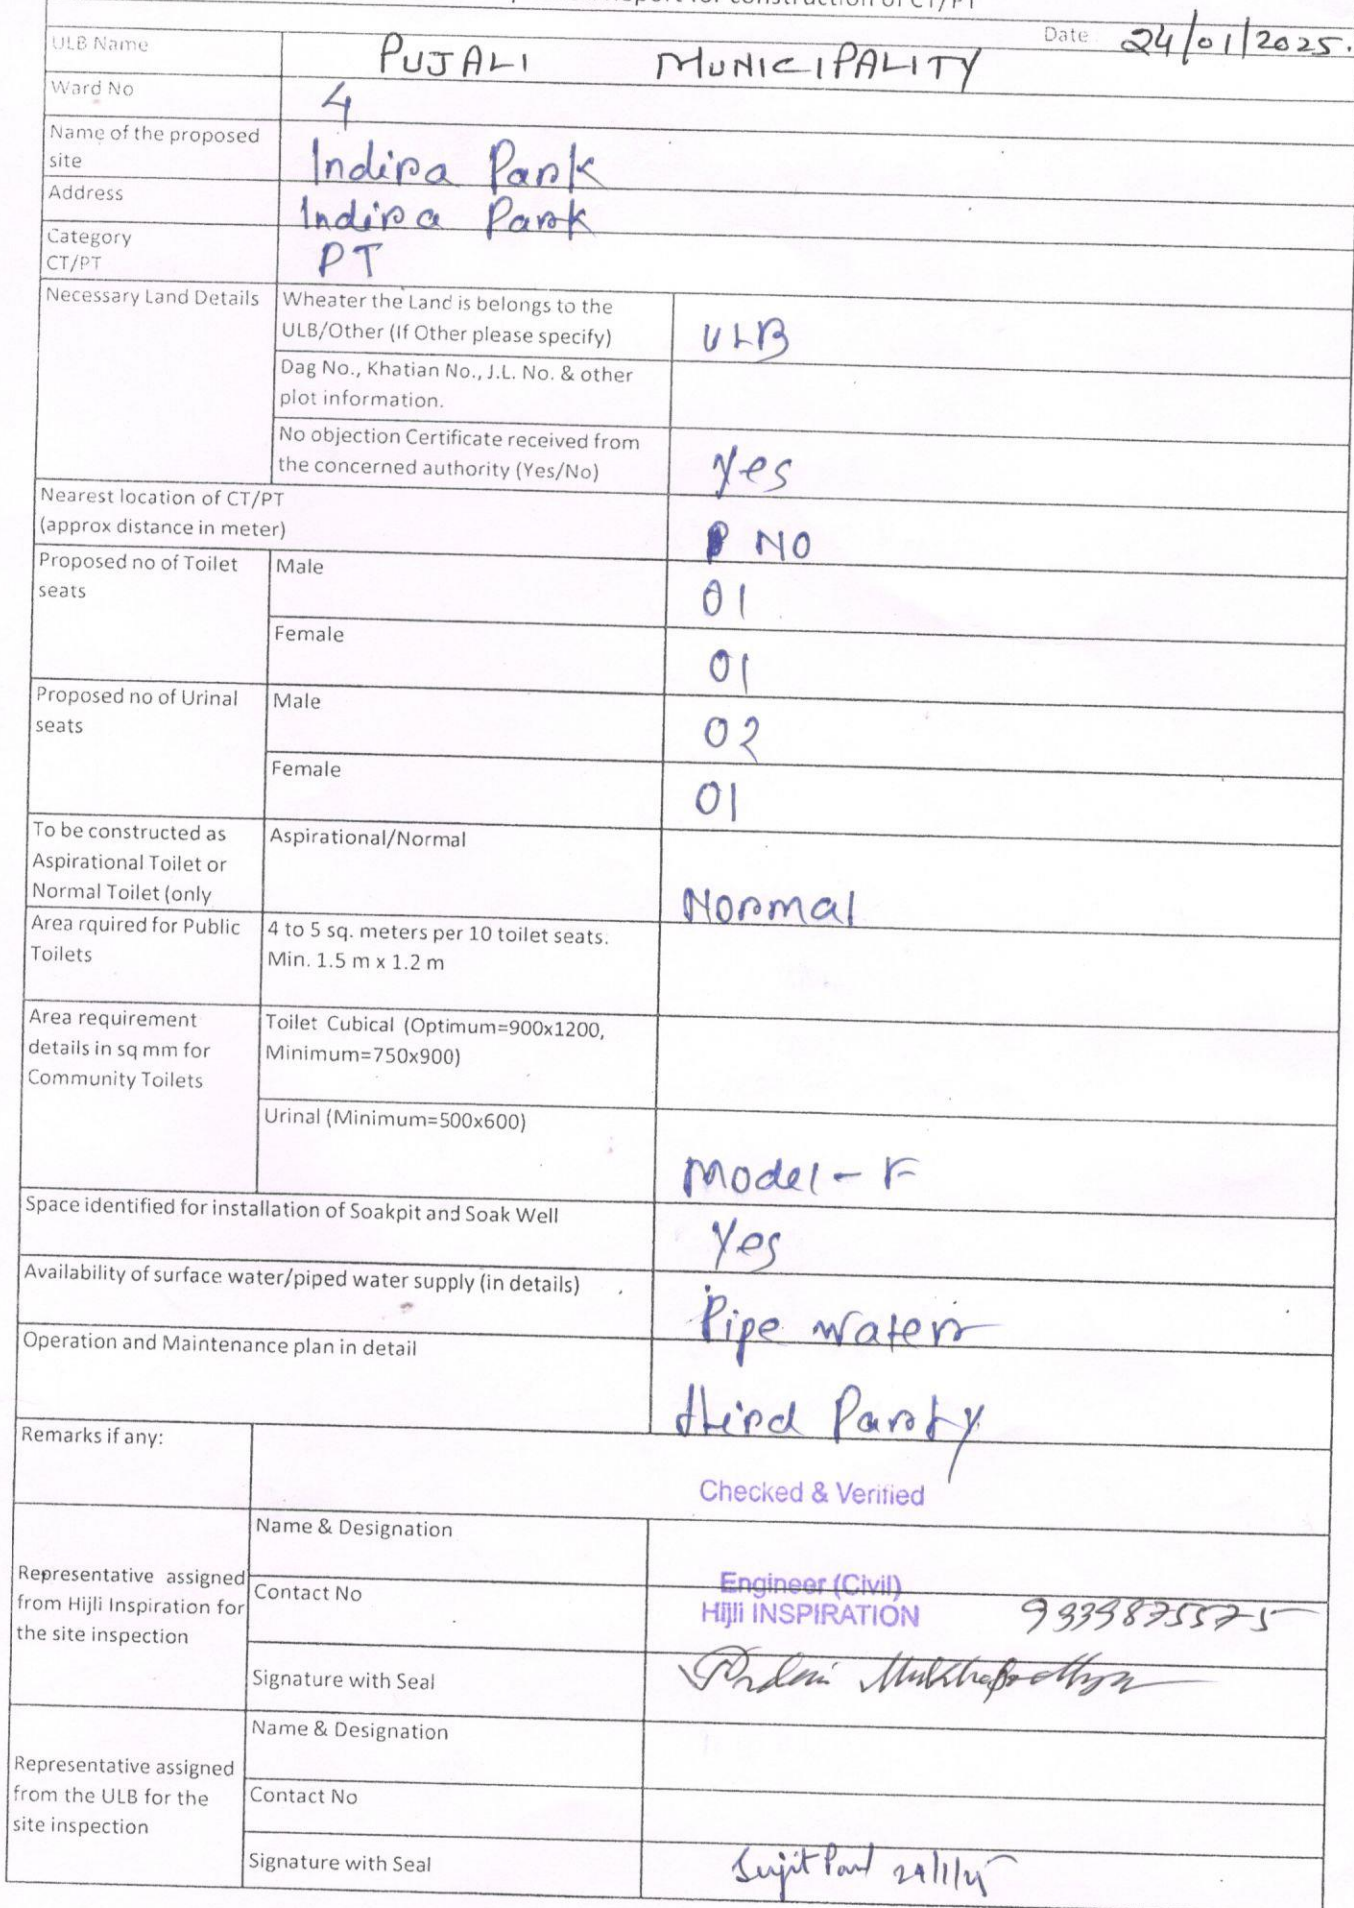 Report for construction of CT/PT
Date 24/01/2025.
ULB Name PUJALI MUNICIPALITY
Ward No 4
Name of the proposed
site Indira Park
Address Indira Park
Category
CT/PT PT
Necessary Land Details Wheater the Land is belongs to the
ULB/Other (If Other please specify) ULB
Dag No., Khatian No., J.L. No. & other
plot information.
No objection Certificate received from
the concerned authority (Yes/No) Yes
Nearest location of CT/PT
(approx distance in meter) NO
Proposed no of Toilet
seats
Male 01
Female 01
Proposed no of Urinal
seats
Male 02
Female 01
To be constructed as
Aspirational Toilet or
Normal Toilet (only
Aspirational/Normal Normal
Area rquired for Public
Toilets
4 to 5 sq. meters per 10 toilet seats.
Min. 1.5 m x 1.2 m
Area requirement
details in sq mm for
Community Toilets
Toilet Cubical (Optimum=900x1200,
Minimum=750x900)
Urinal (Minimum=500x600)
Model - F
Space identified for installation of Soakpit and Soak Well Yes
Availability of surface water/piped water supply (in details) Pipe water
Operation and Maintenance plan in detail
third Party
Remarks if any:
Checked & Verified
Representative assigned
from Hijli Inspiration for
the site inspection
Name & Designation
Engineer (Civil)
Hijli INSPIRATION
Contact No 9339875575
Signature with Seal
Representative assigned
from the ULB for the
site inspection
Name & Designation
Contact No
Signature with Seal Sujit Paul 24/1/25